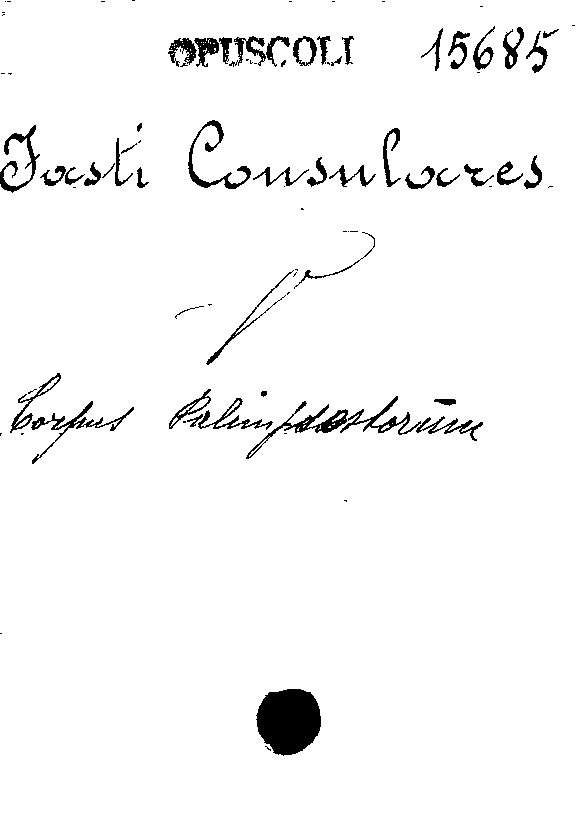 OPUSCOLI 15685
Fasti Consulares
Corpus Palimpsestorum